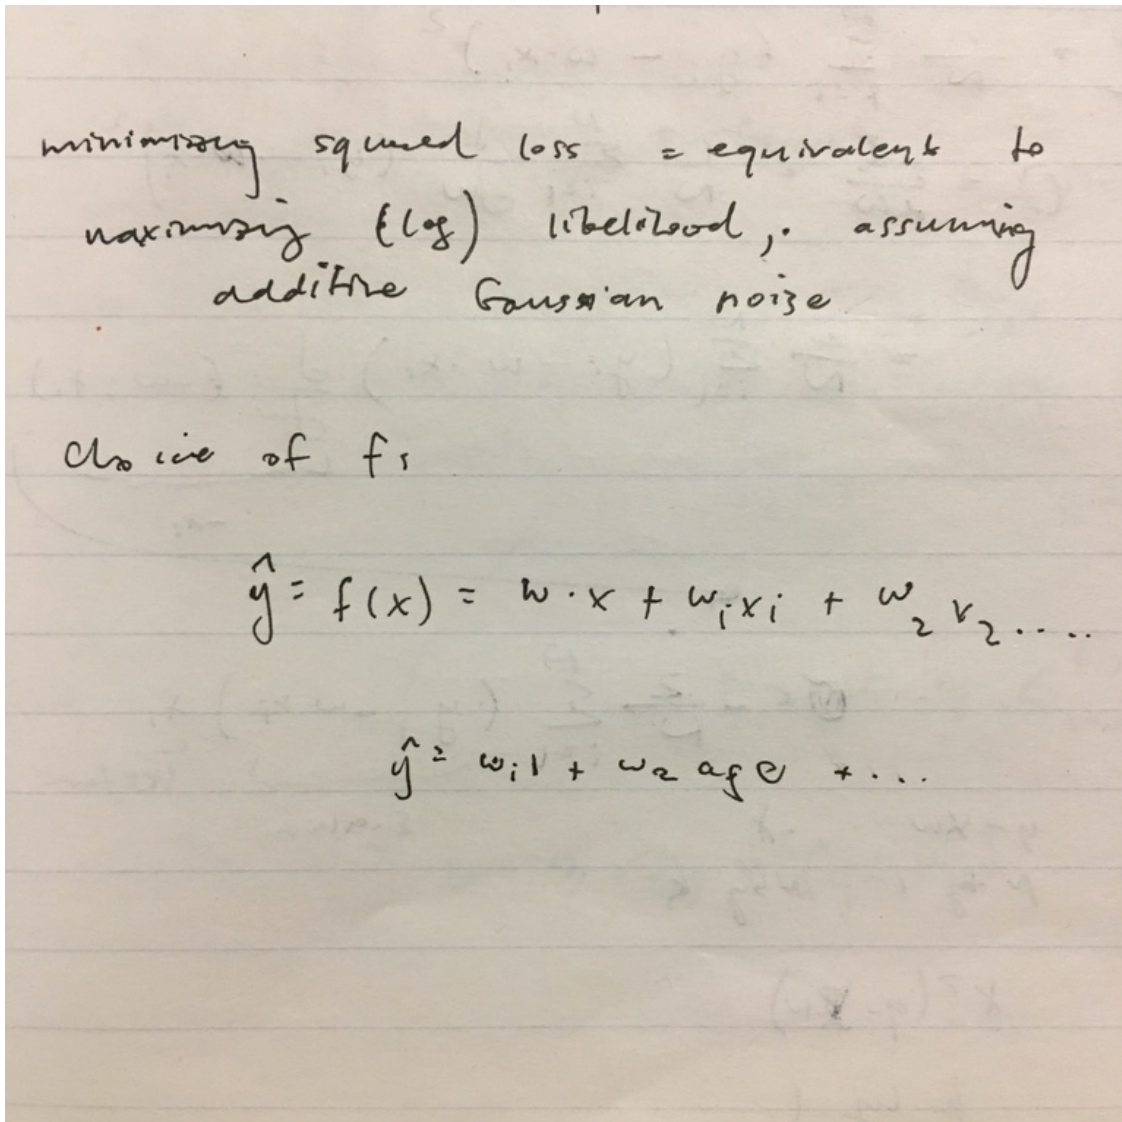 minimizing squared loss = equivalent to
maximizing (log) likelihood, assuming
additive Gaussian noise
choice of f:
ŷ = f(x) = w · x + wᵢxᵢ + w₂x₂ ....
ŷ = wᵢ1 + w₂ age + ...